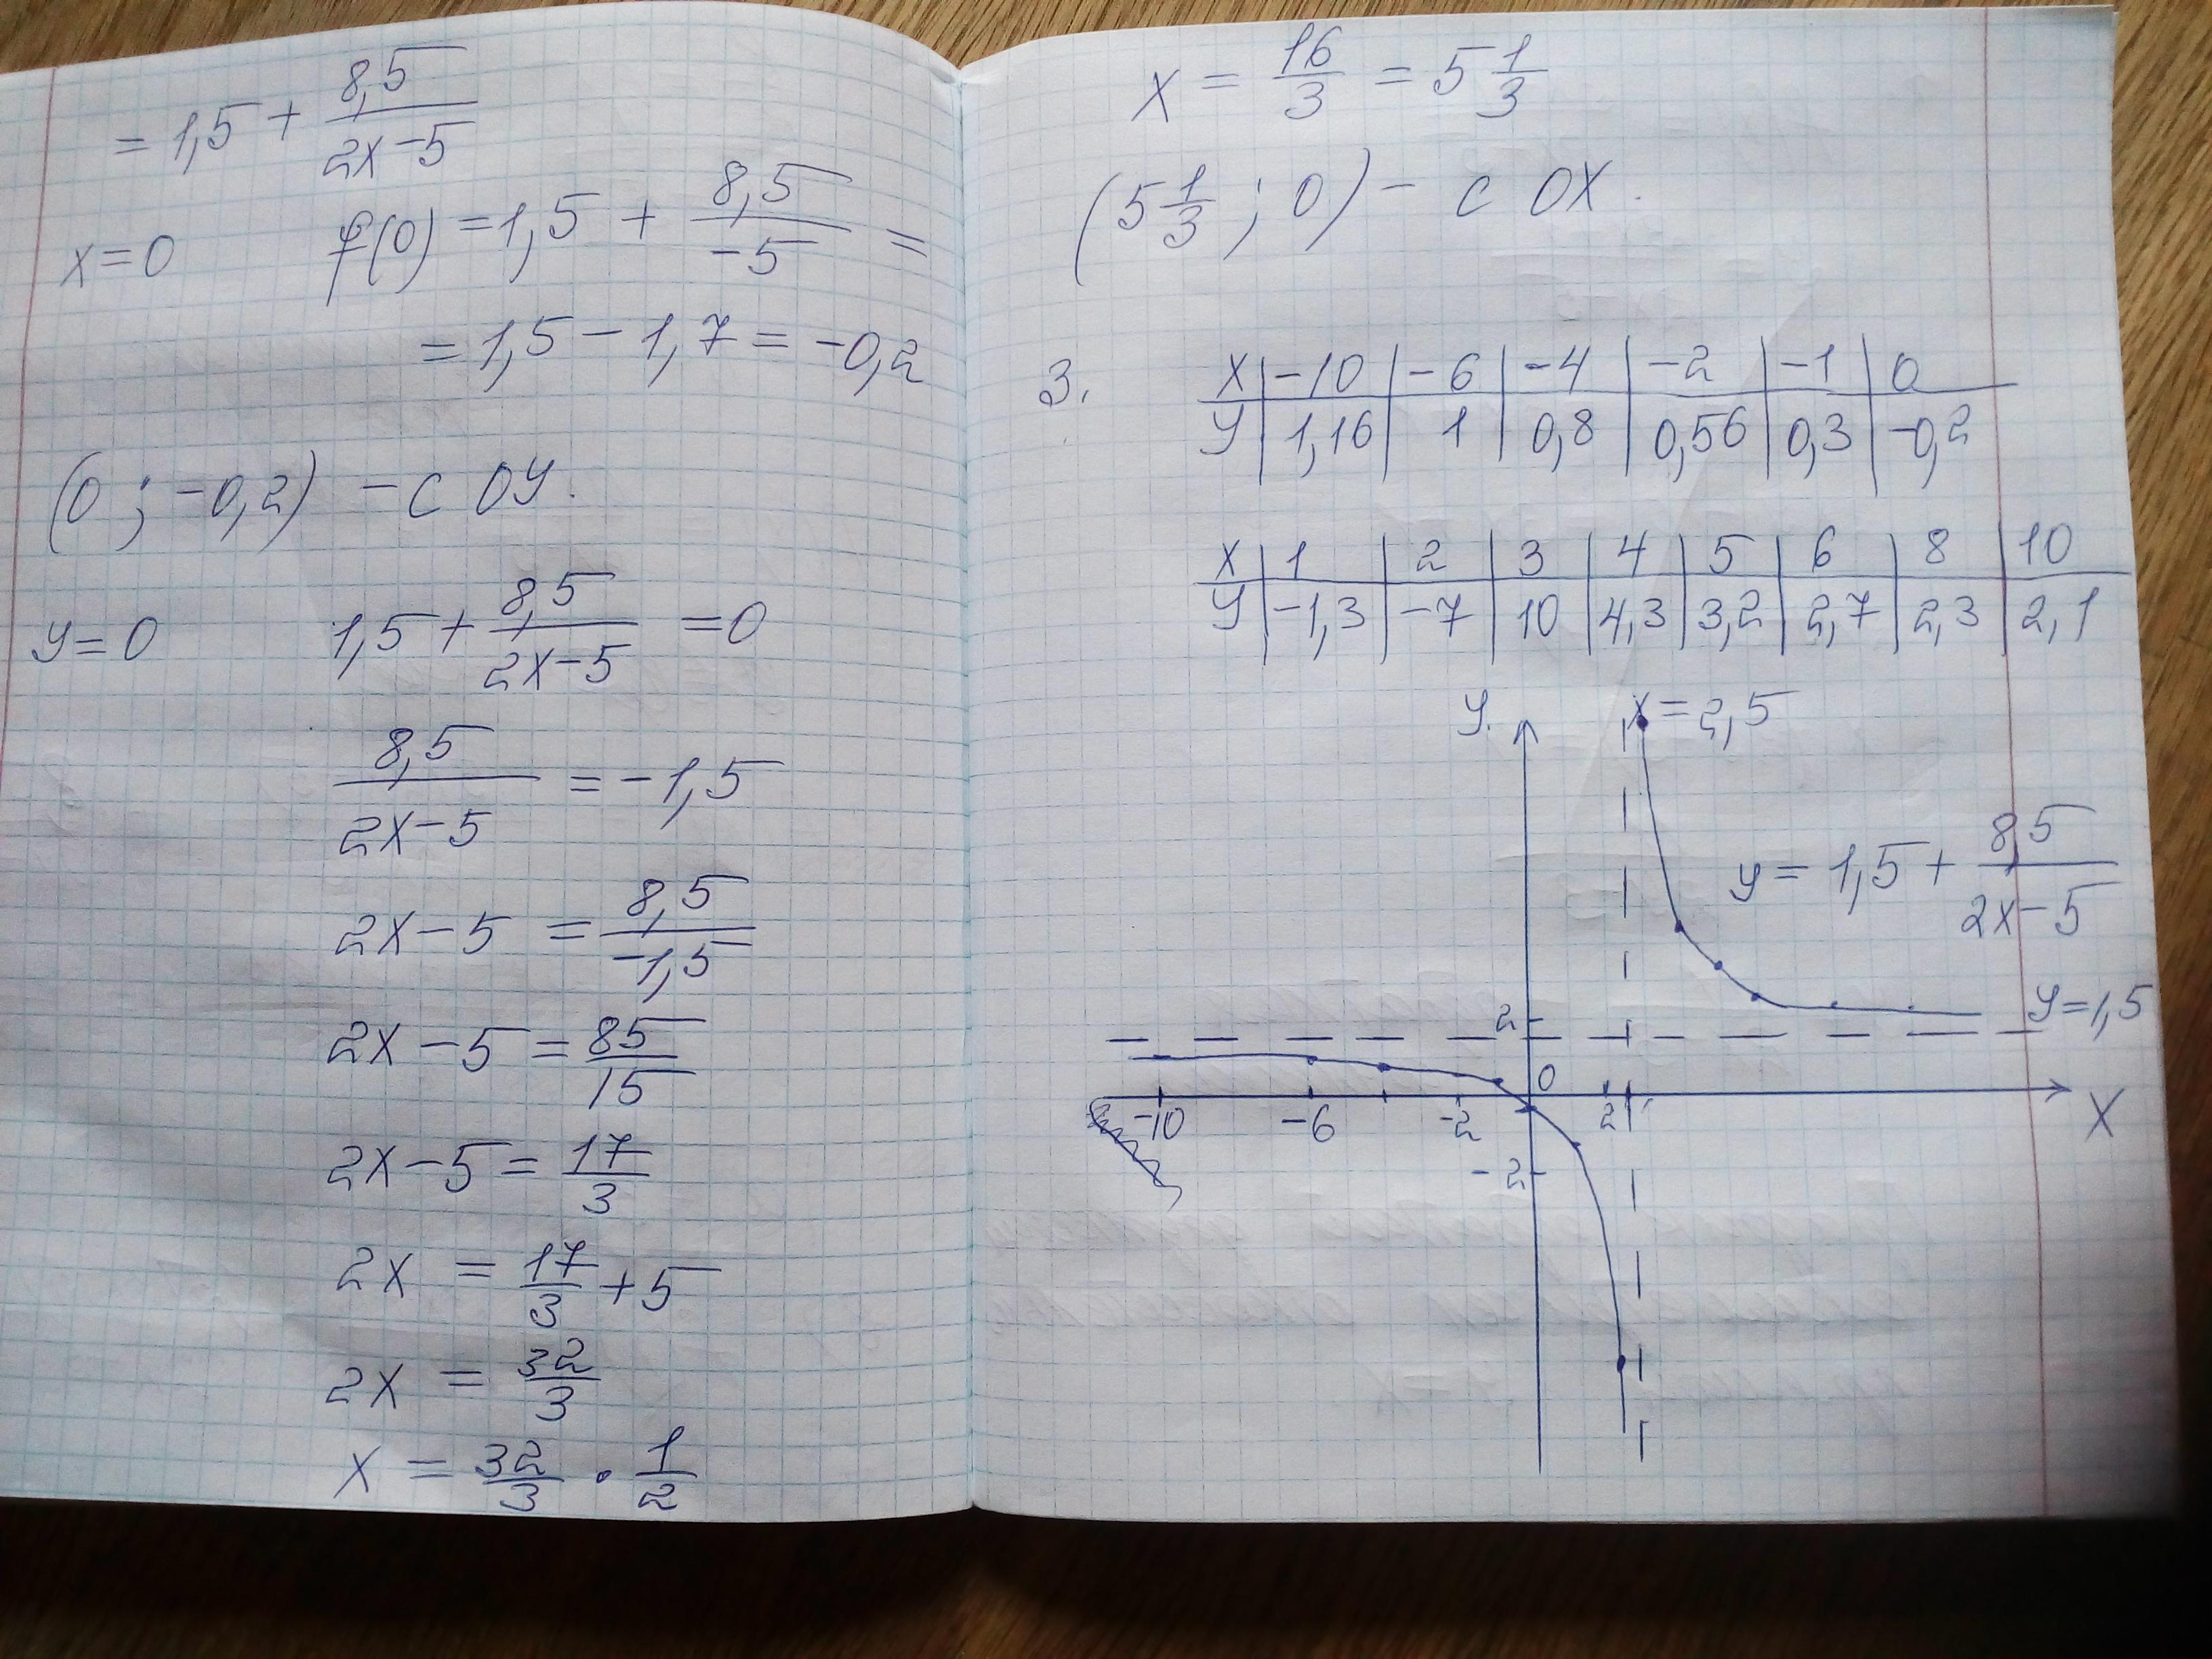 = 1,5 + 8,5/(2x-5)
x=0 f(0) = 1,5 + 8,5/(-5) =
= 1,5 - 1,7 = -0,2
(0 ; -0,2) - с ОУ.
y=0 1,5 + 8,5/(2x-5) = 0
8,5/(2x-5) = -1,5
2x-5 = 8,5/(-1,5)
2x-5 = 85/15
2x-5 = 17/3
2x = 17/3 + 5
2x = 32/3
x = 32/3 · 1/2
x = 16/3 = 5 1/3
(5 1/3 ; 0) - с ОХ.
3. x | -10 | -6 | -4 | -2 | -1 | 0
y | 1,16 | 1 | 0,8 | 0,56 | 0,3 | -0,2
x | 1 | 2 | 3 | 4 | 5 | 6 | 8 | 10
y | -1,3 | -7 | 10 | 4,3 | 3,2 | 2,7 | 2,3 | 2,1
y x=2,5
y = 1,5 + 8,5/(2x-5)
2 y=1,5
0
-10 -6 -2 2 x
-2